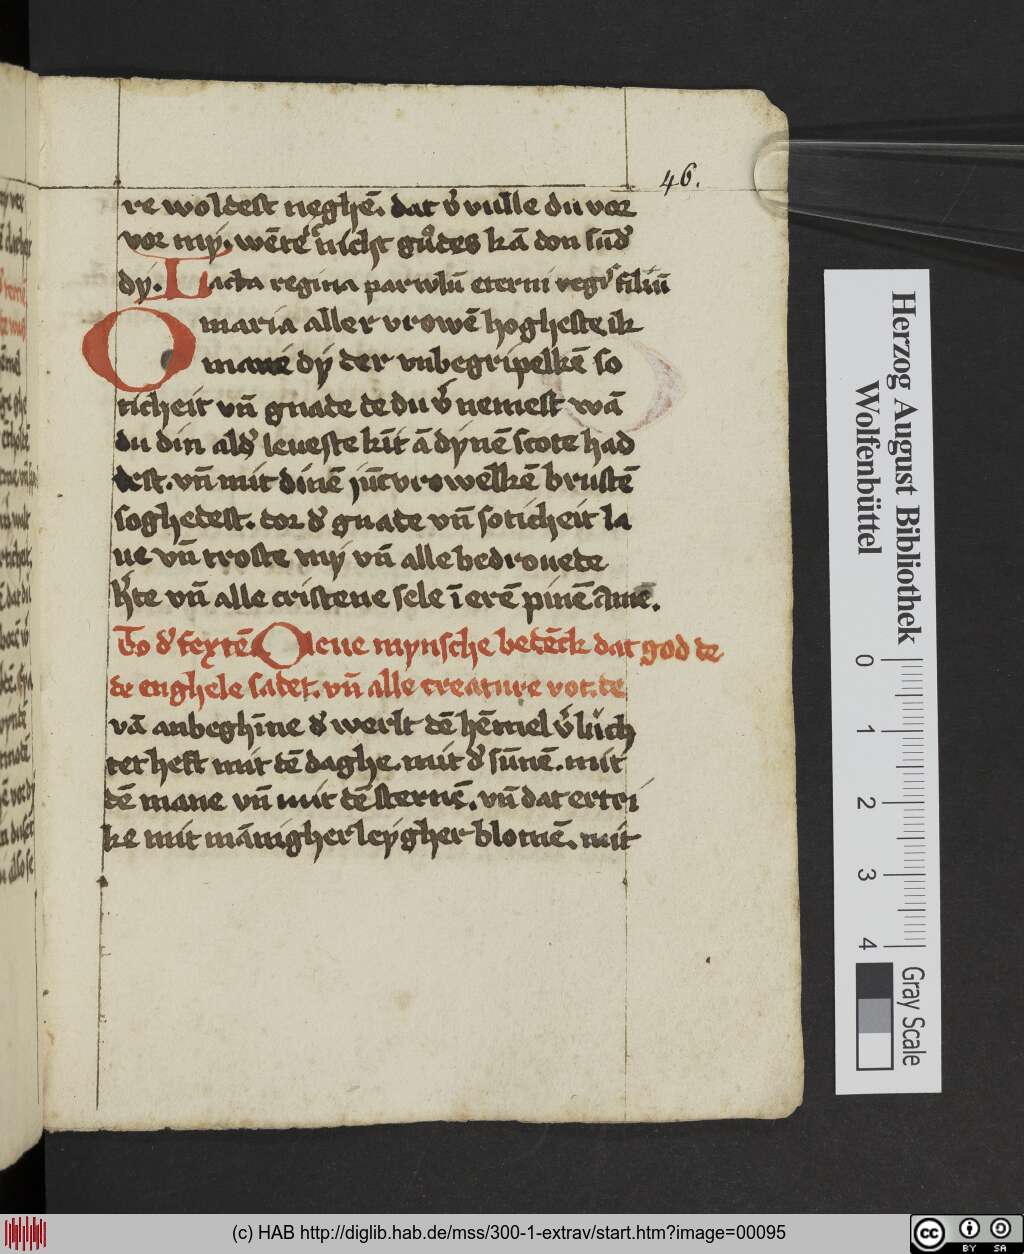 46.
re woldest neghē. dat v̄ vulle du vor
vor my. wēte nicht gudes kā don sūd̄
dy. Lacta regina parwlū eterni regis filiū
O maria aller vrowē hogheste ik
mane dy der vnbegripelkē so
ticheit vn̄ gnade de du v̄ nemest wā
du din ald̄ leueste kīt ā dynē scote had
dest. vn̄ mit dinē jūcvrowelkē brustē
soghedest. dor d̄ gnade vn̄ soticheit la
ue vn̄ troste my vn̄ alle bedrouede
h̄te vn̄ alle cristene sele ī erē pinē Amē.
To d̄ sextē O leue mynsche bedēck dat god de
de enghele sadet. vn̄ alle creature vot. de
vā anbeghīne d̄ werlt dē hēmel v̄luch
tet heft mit dē daghe. mit d̄ sūnē. mit
dē mane vn̄ mit dē sternē. vn̄ dat ertri
ke mit mānigherleygher blomē. mit
Herzog August Bibliothek
Wolfenbüttel
0 1 2 3 4
Gray Scale
(c) HAB http://diglib.hab.de/mss/300-1-extrav/start.htm?image=00095
cc BY SA